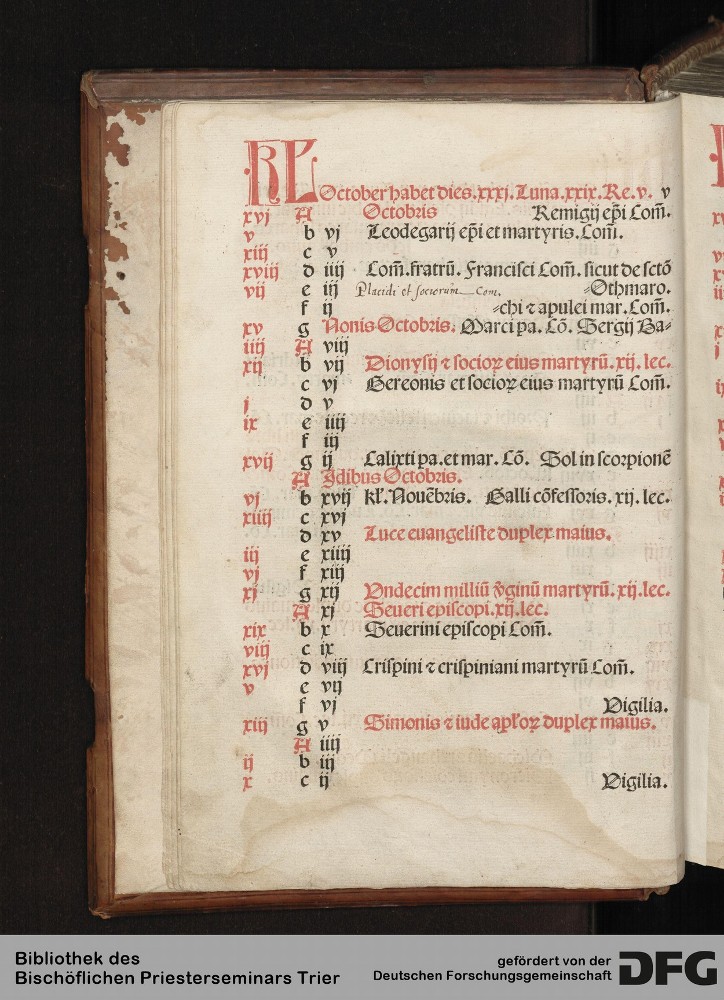 KL October habet dies.xxxj.Luna.xxix.Re.v. v
xvj A Octobris Remigij ep̄i Com̄.
v b vj Leodegarij ep̄i et martyris.Com̄.
xiij c v
xviij d iiij Com̄.fratrū. Francisci Com̄. sicut de sctō
vij e iij Placidi et sociorum Com. ⸗Othmaro.
f ij ⸗chi ⁊ apulei mar.Com̄.
xv g Nonis Octobris. Marci pa. Cō. Sergij Ba⸗
iiij A viij
xij b vij Dionysij ⁊ socioꝝ eius martyrū.xij.lec.
c vj Gereonis et socioꝝ eius martyrū Com̄.
j d v
ix e iiij
f iij
xvij g ij Calixti pa.et mar. Cō. Sol in scorpionē
A Idibus Octobris.
vj b xvij kł. Nouēbris. Galli cōfessoris. xij. lec.
xiiij c xvj
d xv Luce euangeliste duplex maius.
iij e xiiij
vj f xiij
xj g xij Vndecim milliū v̄ginū martyrū.xij.lec.
A xj Seueri episcopi.xij.lec.
xix b x Seuerini episcopi Com̄.
viij c ix
xvj d viij Crispini ⁊ crispiniani martyrū Com̄.
v e vij
f vj Vigilia.
xiij g v Simonis ⁊ iude apƚoꝝ duplex maius.
A iiij
ij b iij
x c ij Vigilia.
Bibliothek des
Bischöflichen Priesterseminars Trier
gefördert von der
Deutschen Forschungsgemeinschaft
DFG